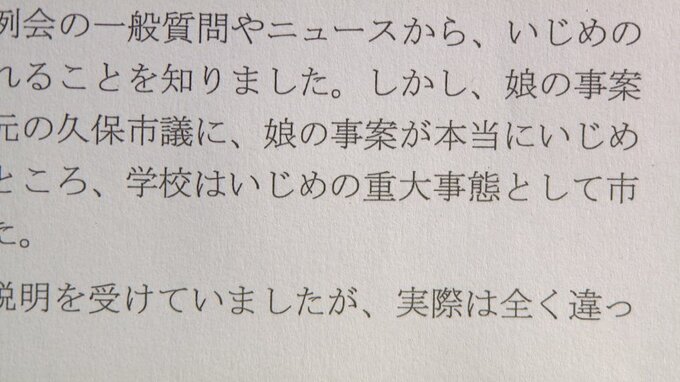 例会の一般質問やニュースから、いじめの
れることを知りました。しかし、娘の事案
元の久保市議に、娘の事案が本当にいじめ
ところ、学校はいじめの重大事態として市
た。
説明を受けていましたが、実際は全く違っ